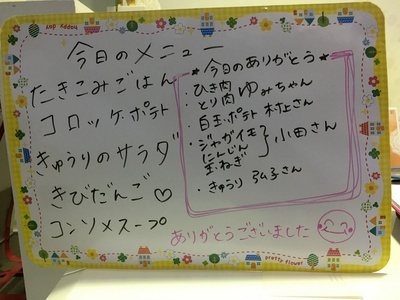 今日のメニュー
たきこみごはん
コロッケ・ポテト
きゅうりのサラダ
きびだんご♡
コンソメスープ
★今日のありがとう★
・ひき肉
とり肉 ゆみちゃん
・白玉、ポテト 村上さん
・ジャガイモ
にんじん
玉ねぎ } 小田さん
・きゅうり 弘子さん
ありがとうございました
pretty flower
happy day